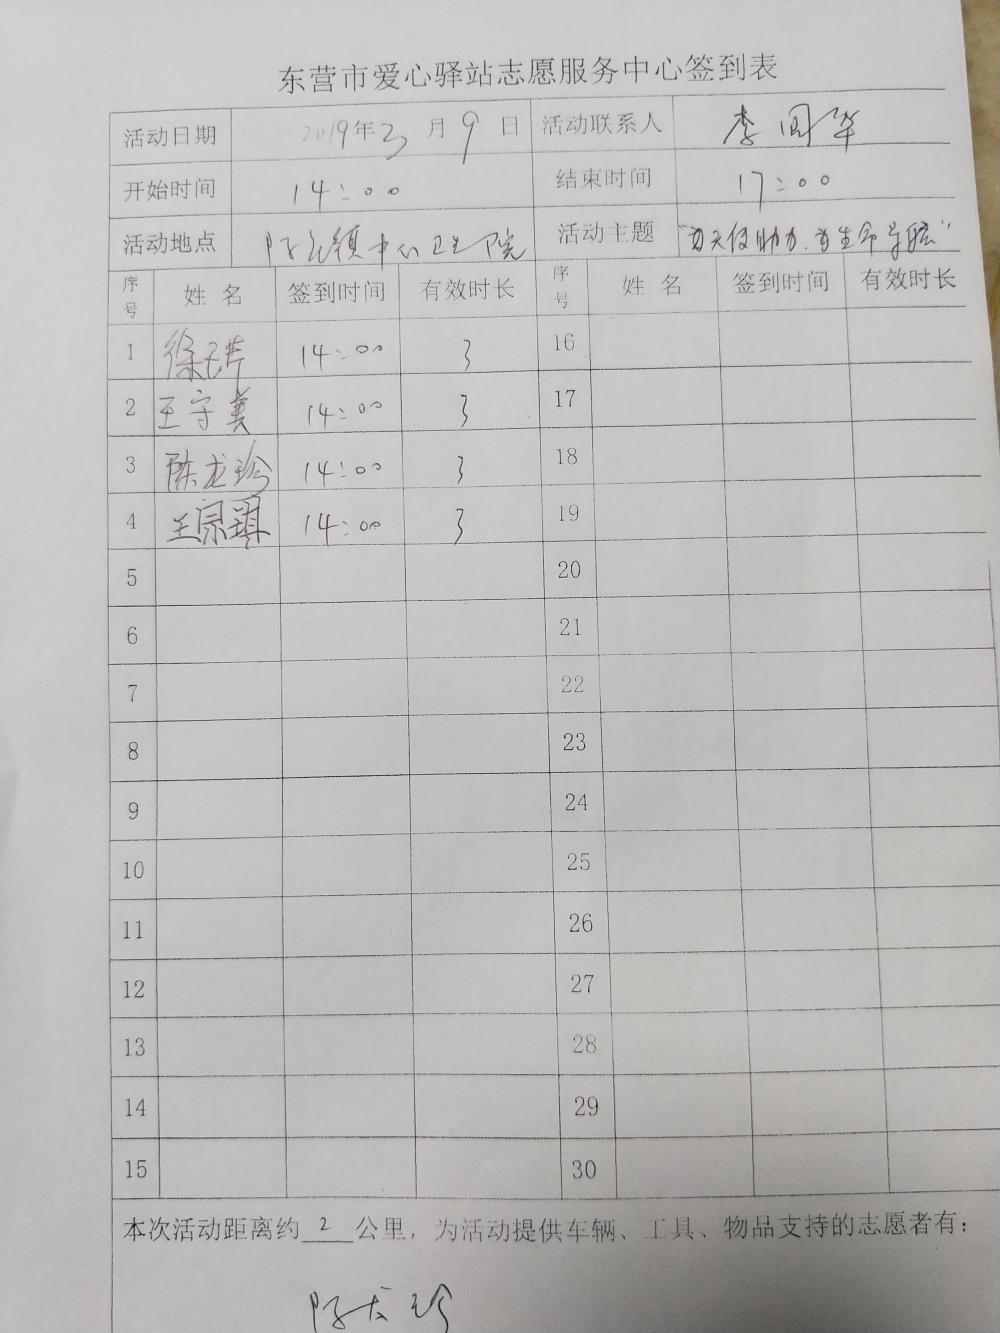 东营市爱心驿站志愿服务中心签到表
活动日期 2019年3月9日 活动联系人 李国华
开始时间 14:00 结束时间 17:00
活动地点 陈官镇中心卫生院 活动主题 "为天使助力.为生命导航"
序号 姓名 签到时间 有效时长 序号 姓名 签到时间 有效时长
1 徐 14:00 3 16
2 王守美 14:00 3 17
3 陈龙珍 14:00 3 18
4 王宗琪 14:00 3 19
5 20
6 21
7 22
8 23
9 24
10 25
11 26
12 27
13 28
14 29
15 30
本次活动距离约 2 公里，为活动提供车辆、工具、物品支持的志愿者有：
陈龙珍